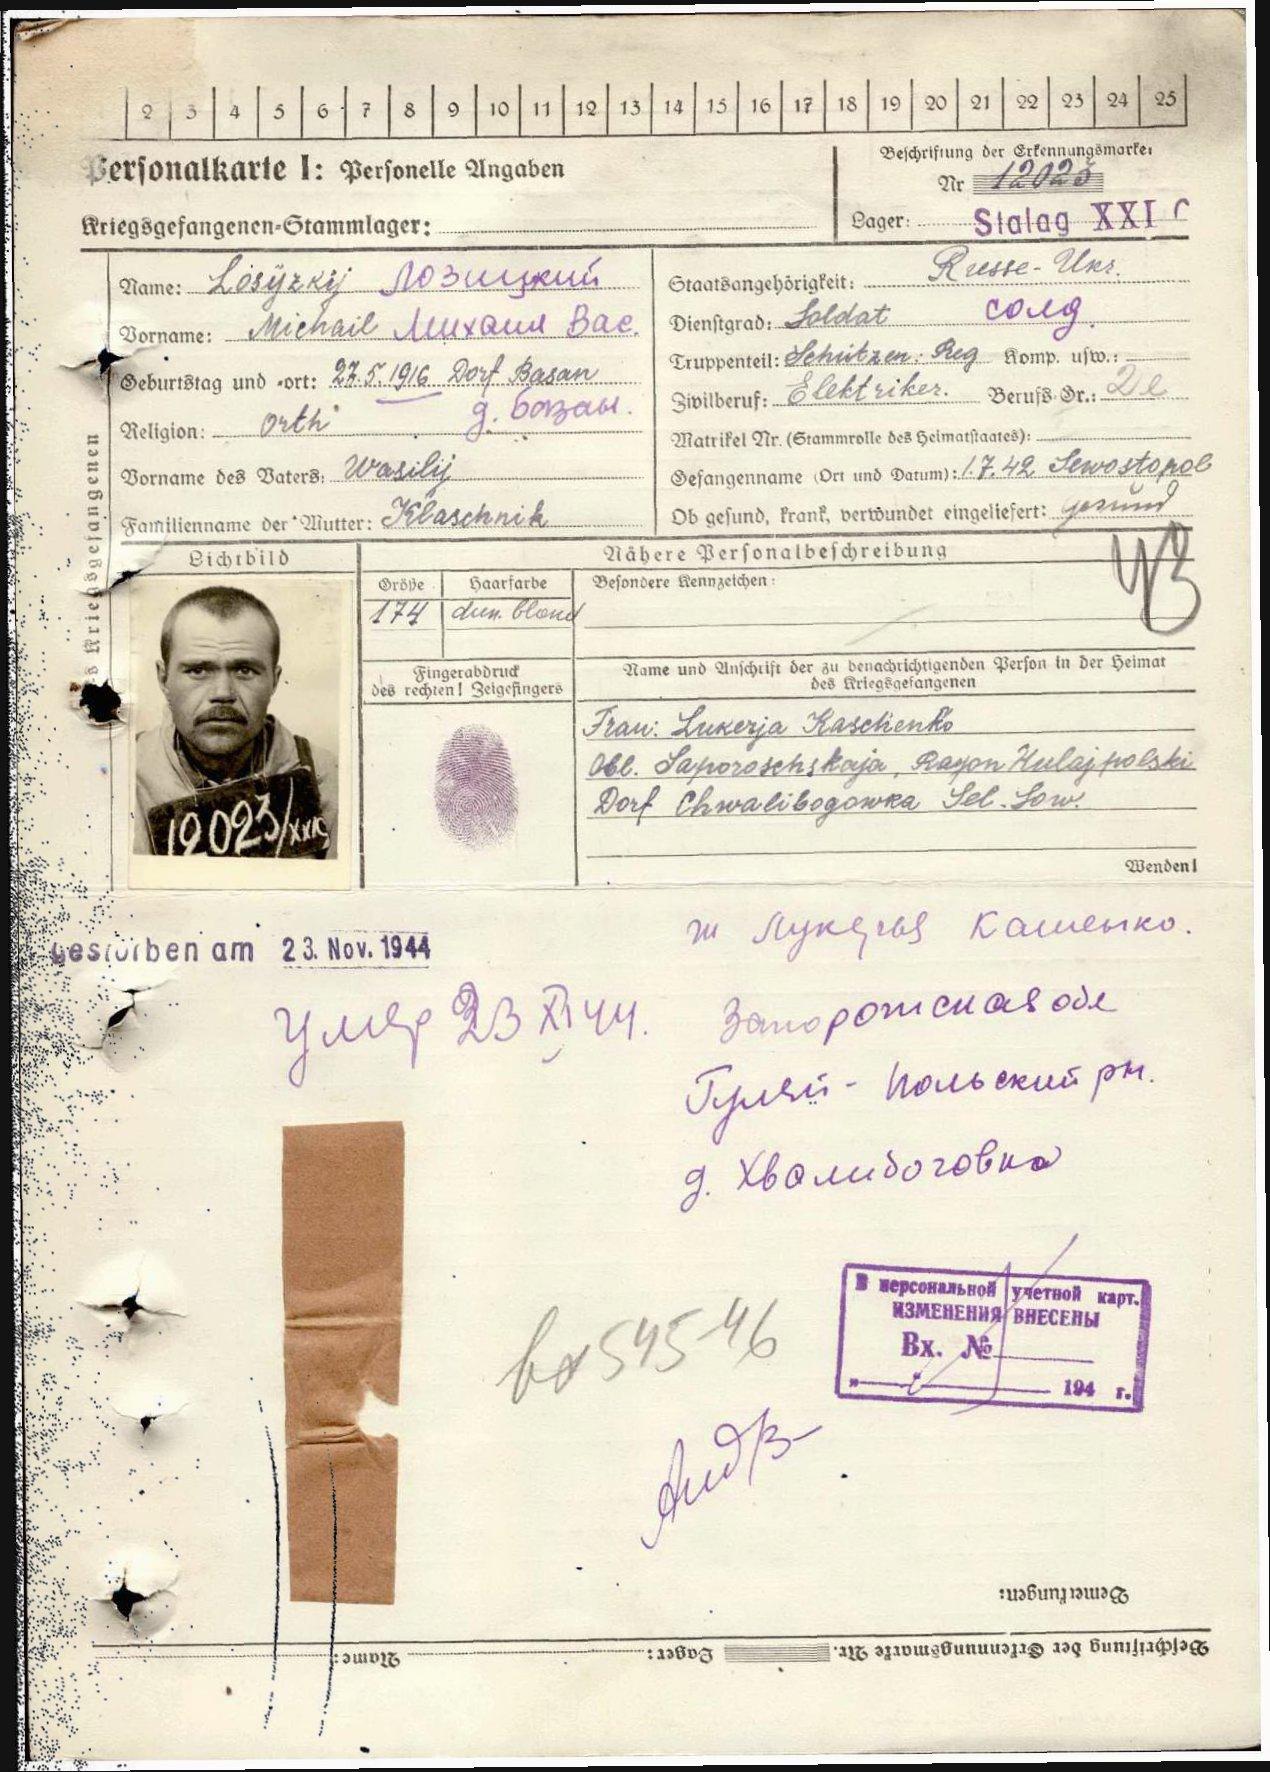 2 3 4 5 6 7 8 9 10 11 12 13 14 15 16 17 18 19 20 21 22 23 24 25
Personalkarte I: Personelle Angaben
Kriegsgefangenen-Stammlager:
Beschriftung der Erkennungsmarke:
Nr 12023
Lager: Stalag XXI C
Name: Losyzkij Лозицкий
Vorname: Michail Михаил Вас.
Geburtstag und -ort: 27.5.1916 Dorf Basan
Religion: orth д. Базан.
Vorname des Vaters: Wasilij
Familienname der Mutter: Klaschnik
Staatsangehörigkeit: Russe-Ukr.
Dienstgrad: Soldat солд.
Truppenteil: Schützen. Reg Komp. usw.:
Zivilberuf: Elektriker. Berufs-Gr.:
Matrikel Nr. (Stammrolle des Heimatstaates):
Gefangenname (Ort und Datum): 1.7.42 Sewostopol
Ob gesund, krank, verwundet eingeliefert: gesund
s Kriegsgefangenen
Lichtbild
Nähere Personalbeschreibung
Größe Haarfarbe Besondere Kennzeichen:
174 dun. blond
Fingerabdruck
des rechten! Zeigefingers
Name und Anschrift der zu benachrichtigenden Person in der Heimat
des Kriegsgefangenen
Frau: Lukerja Kaschenko
Obl. Saporoschskaja, Rayon Hulajpolski
Dorf Chwalibogowka Sel. Sow.
12023/XXIC
Wenden!
gestorben am 23. Nov. 1944
Умер 23 XI 44.
ж Лукерья Кашенко.
Запорожская обл
Гуляй-Польский рн.
д. Хвалибоговка
В персональной учетной карт.
ИЗМЕНЕНИЯ ВНЕСЕНЫ
Вх. №
" " 194 г.
вх 54546
Bemerkungen:
Beschriftung der Erkennungsmarke Nr. Lager: Name: